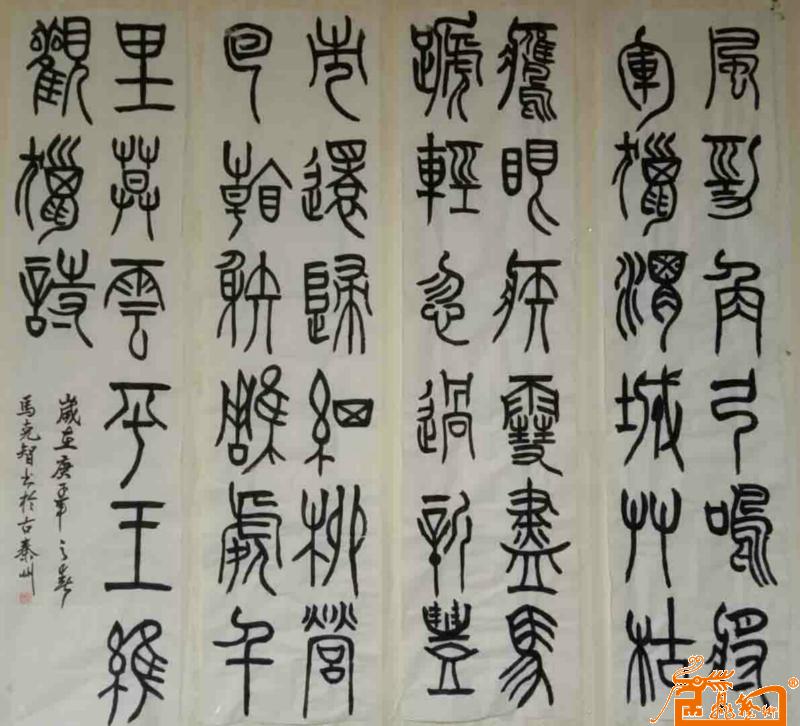 風勁角弓鳴將
軍獵渭城艸枯
鷹眼疾雪盡馬
蹏輕忽過新豐
市還歸細柳營
回看射雕處千
里莫雲平王維
觀獵詩
歲在庚子年之春
馬克智書於古秦州